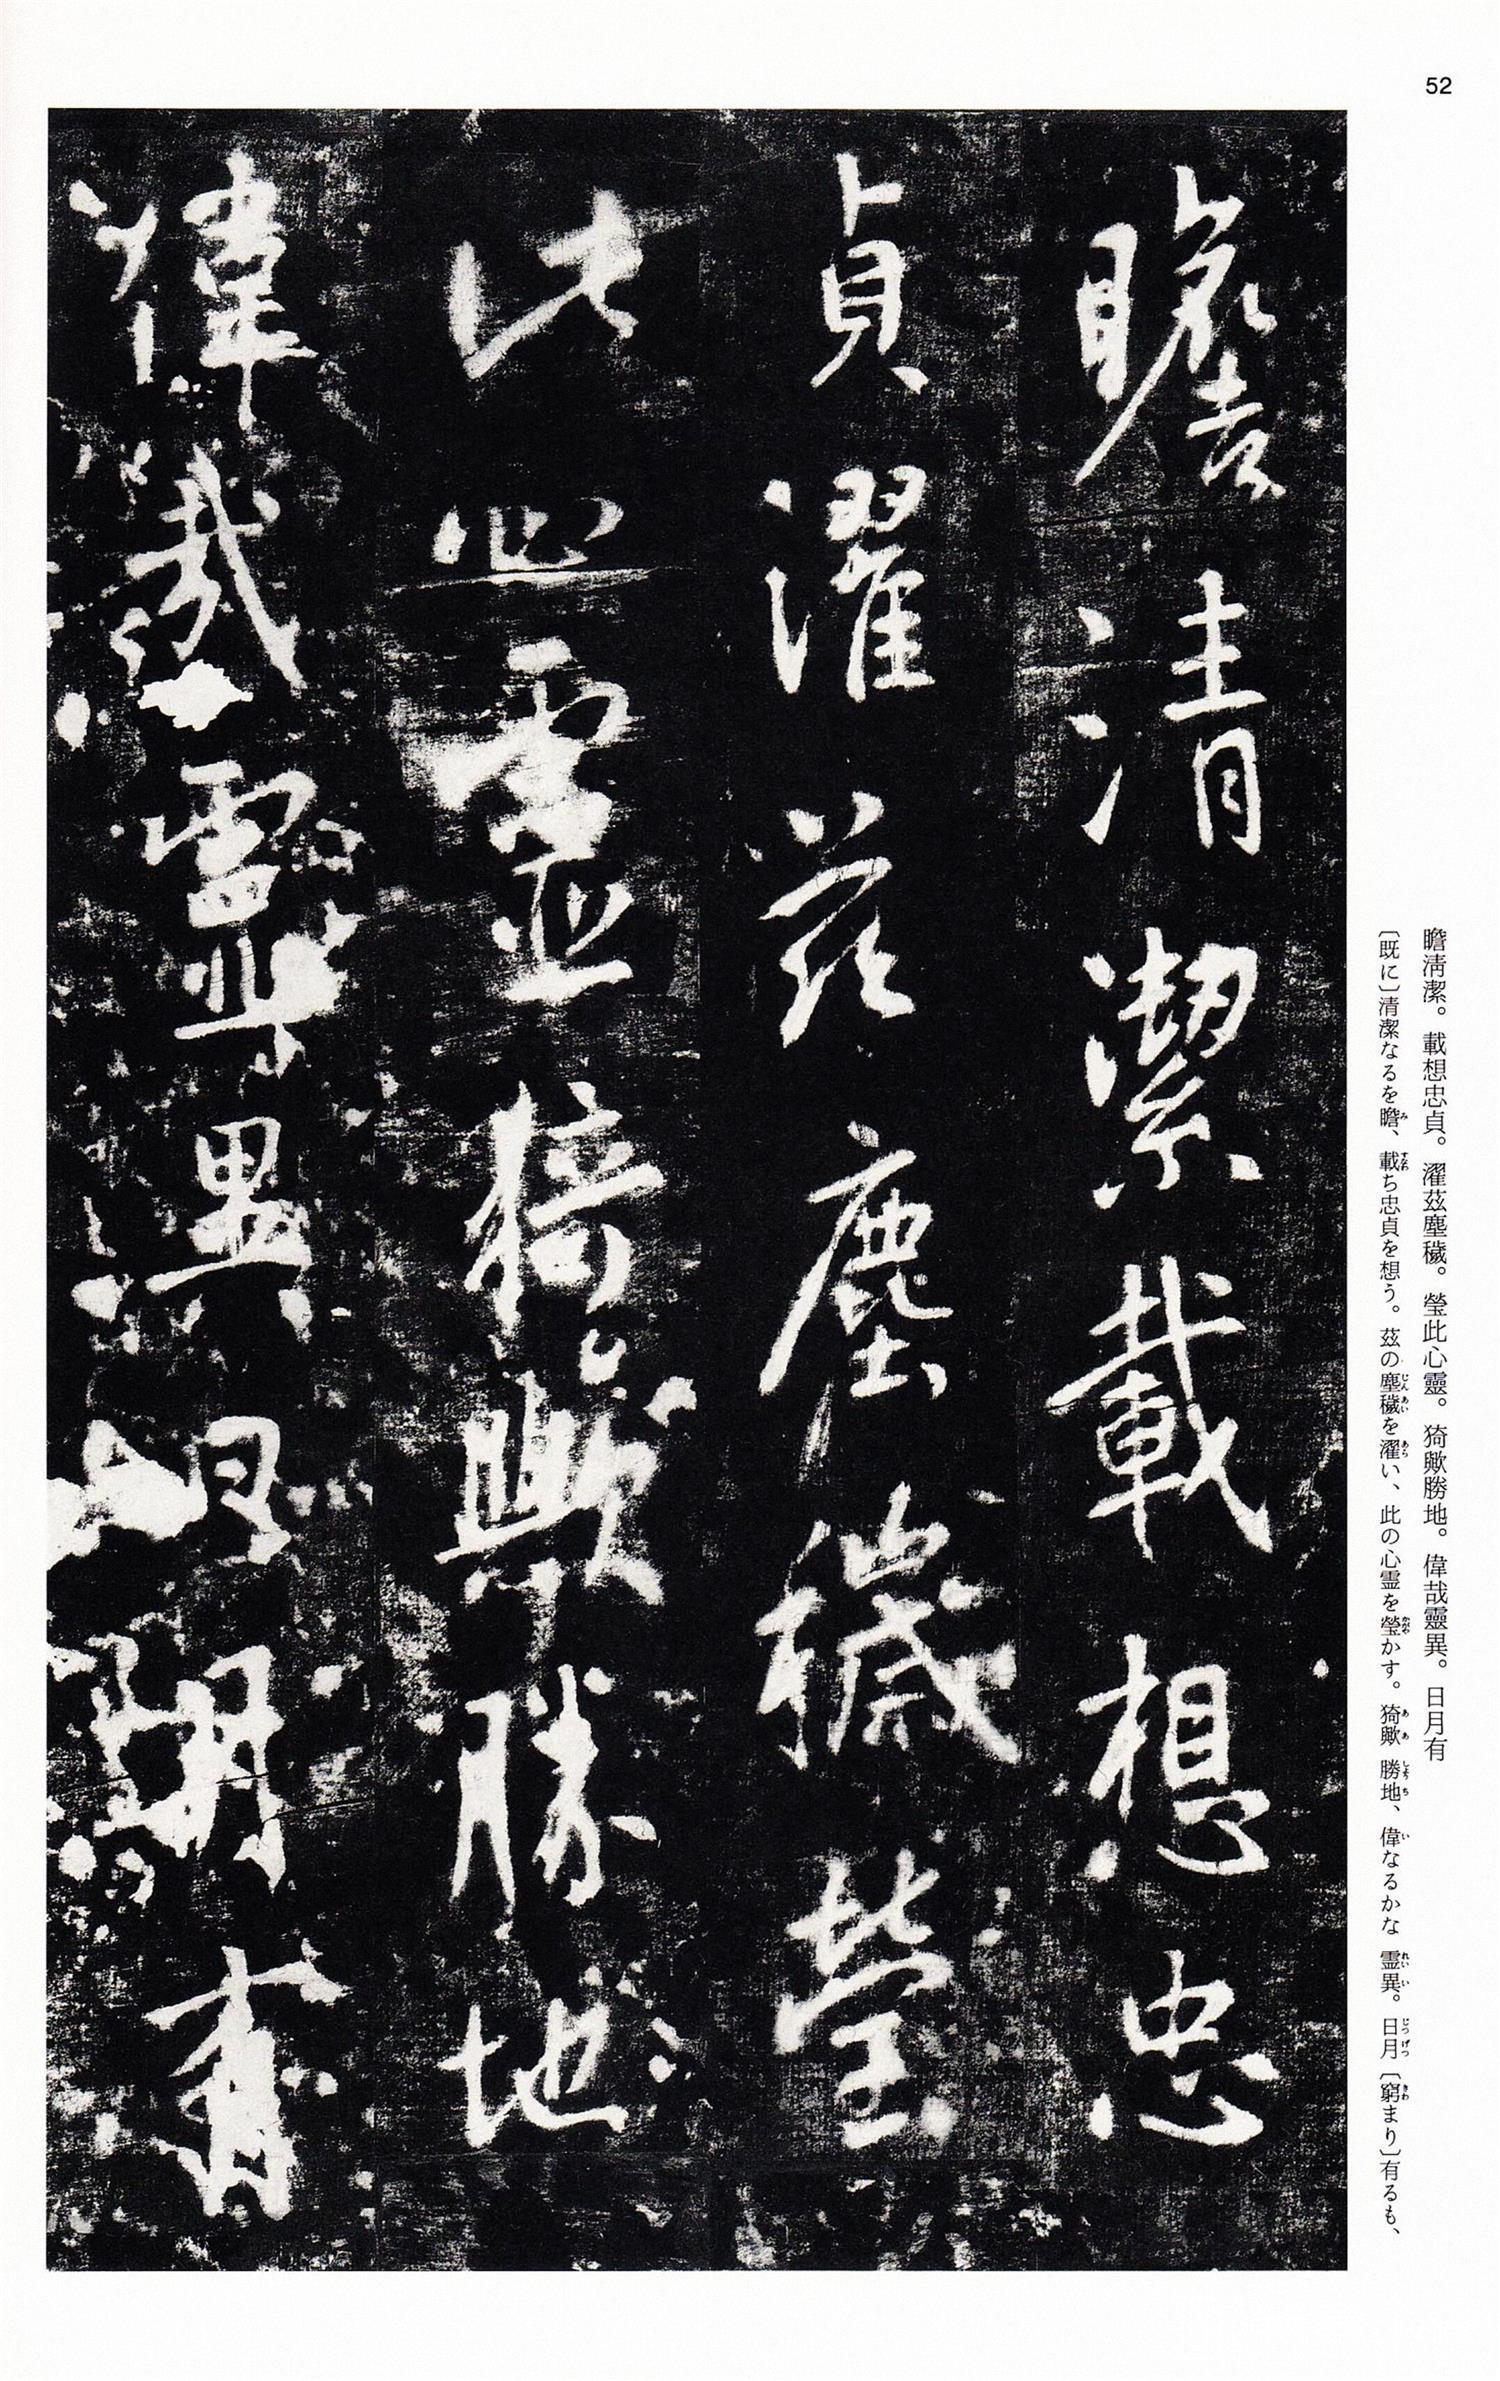 52
瞻淸潔。載想忠貞。濯茲塵穢。瑩此心靈。猗歟勝地。偉哉靈異。日月有
〔既に〕清潔なるを瞻、載ち忠貞を想う。茲の塵穢を濯い、此の心霊を瑩かす。猗歟 勝地、偉なるかな 霊異。日月〔窮まり〕有るも、
瞻清潔載想忠
貞濯茲塵穢瑩
此心靈猗歟勝地
偉哉靈異日月有